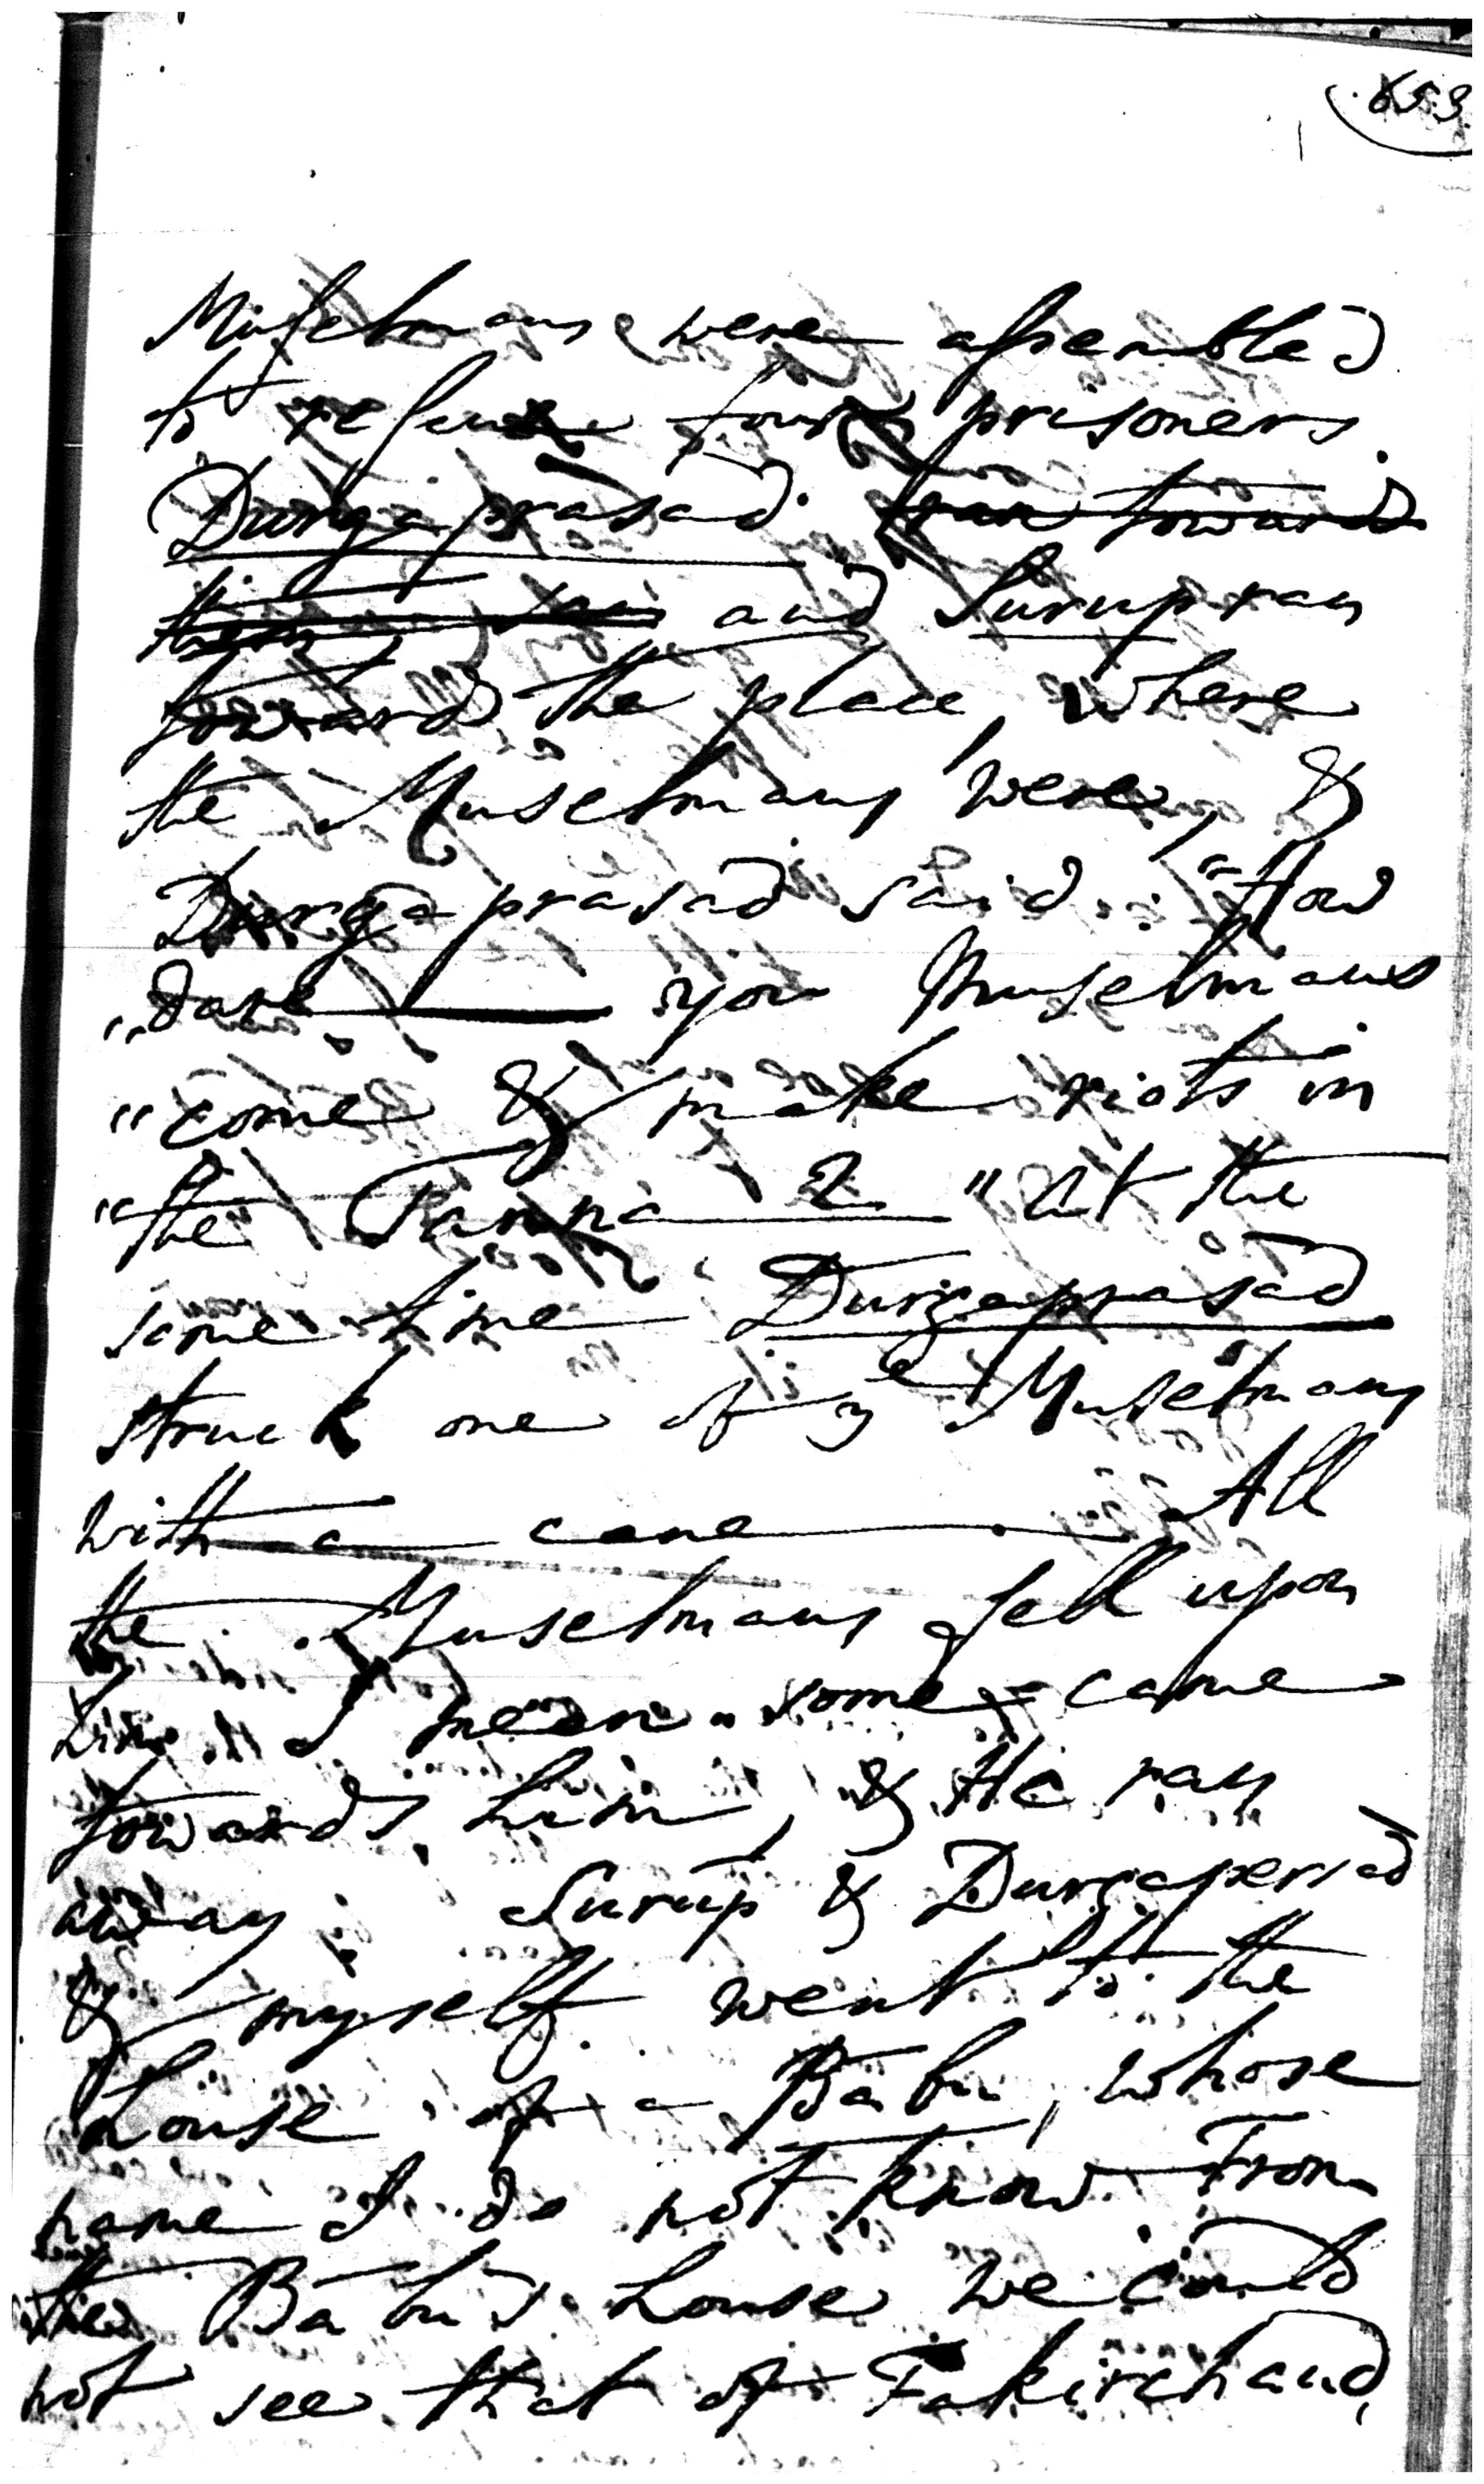 653
Muselmans were assembled
to rescue four prisoners.
Durgaprasad. ran toward
them and Surup ran
toward the place, where
the Muselmans were, &
Durgaprasad said: "How
"dare you Muselmans
"come & make riots in
"the Tanna? "At the
same time Durgaprasad
struck one of ye Muselmans
with a cane. All
the Muselmans fell upon
him. I mean some came
towards him, & He ran
away. Surup & Durgapersad
& myself went to the
house of a Babu, whose
name I do not know. From
the Babu's house we could
not see that of Fakirchand,